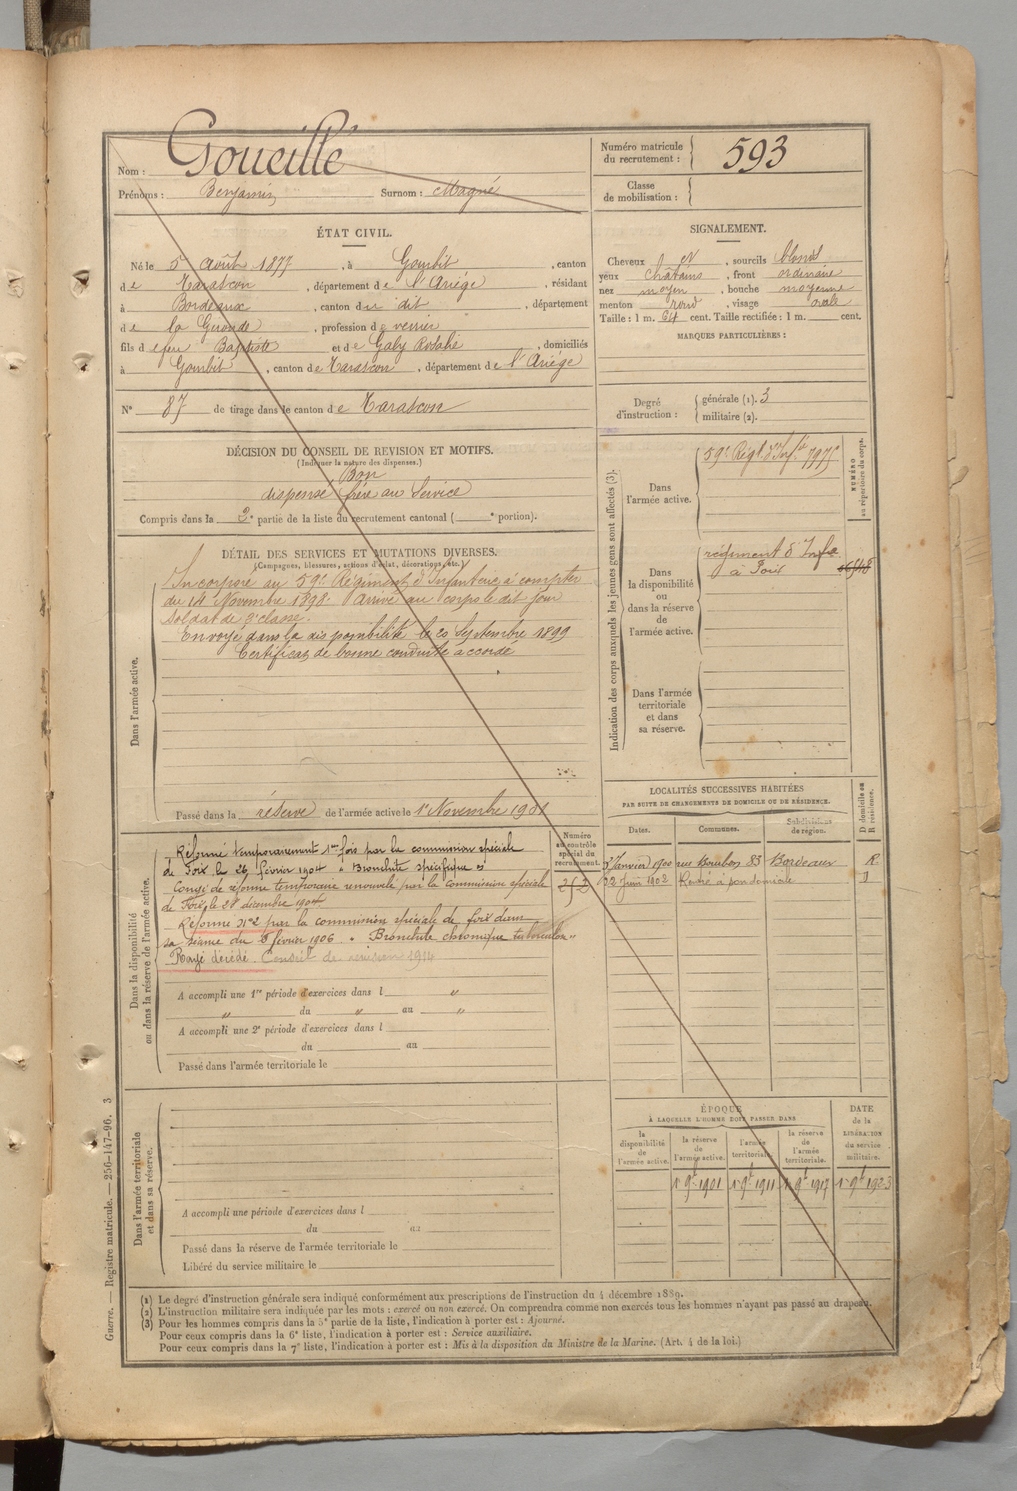 Nom : Goueille
Prénoms : Benjamin Surnom : Magné
Numéro matricule
du recrutement : 593
Classe
de mobilisation :
ÉTAT CIVIL.
Né le 5 Août 1877, à Gourbit, canton
de Tarascon, département de l'Ariége, résidant
à Bordeaux, canton du dit, département
de la Gironde, profession de verrier
fils de feu Baptiste et de Galy Rosalie, domiciliés
à Gourbit, canton de Tarascon, département de l'Ariége
N° 87 de tirage dans le canton de Tarascon
SIGNALEMENT.
Cheveux et, sourcils blonds
yeux châtains, front ordinaire
nez moyen, bouche moyenne
menton rond, visage ovale
Taille : 1 m. 64 cent. Taille rectifiée : 1 m. cent.
MARQUES PARTICULIÈRES :
Degré
d'instruction :
générale (1). 3
militaire (2).
DÉCISION DU CONSEIL DE REVISION ET MOTIFS.
(Indiquer la nature des dispenses.)
Bon
dispensé frère au Service
Compris dans la 2e partie de la liste du recrutement cantonal ( e portion).
Indication des corps auxquels les jeunes gens sont affectés (3).
NUMÉRO
au répertoire du corps.
Dans
l'armée active.
59e Régt d'Infie
Dans
la disponibilité
ou
dans la réserve
de
l'armée active.
régiment d'Infie
à Foix
Dans l'armée
territoriale
et dans
sa réserve.
DÉTAIL DES SERVICES ET MUTATIONS DIVERSES.
(Campagnes, blessures, actions d'éclat, décorations, etc.)
Dans l'armée active.
Incorporé au 59e Régiment d'Infanterie à compter
du 14 Novembre 1898. Arrivé au corps le dit jour
Soldat de 2e classe.
Envoyé dans la disponibilité le 20 Septembre 1899
Certificat de bonne conduite accordé
Passé dans la réserve de l'armée active le 1er Novembre 1901
LOCALITÉS SUCCESSIVES HABITÉES
PAR SUITE DE CHANGEMENTS DE DOMICILE OU DE RÉSIDENCE.
D domicile ou
R résidence.
Dates. Communes. Subdivision
de région.
Janvier 1900 rue Bourbon 83 Bordeaux R
22 Juin 1902 Rentré à son domicile D
Numéro
au contrôle
spécial du
recrutement.
Dans la disponibilité
ou dans la réserve de l'armée active.
Réformé temporairement 1re fois par la commission spéciale
de Foix le 26 février 1904 Bronchite spécifique
Congé de réforme temporaire renouvelé par la Commission spéciale
de Foix le 28 décembre 1904
Réformé N°2 par la commission spéciale de Foix dans
sa séance du 8 février 1906 Bronchite chronique
Rayé décédé. Conseil de révision 1914
A accompli une 1re période d'exercices dans l "
" du " au "
A accompli une 2e période d'exercices dans l
du au
Passé dans l'armée territoriale le
Dans l'armée territoriale
et dans sa réserve.
A accompli une période d'exercices dans l
du au
Passé dans la réserve de l'armée territoriale le
Libéré du service militaire le
ÉPOQUE
À LAQUELLE L'HOMME DOIT PASSER DANS
DATE
de la
LIBÉRATION
du service
militaire.
la
disponibilité
de
l'armée active.
la réserve
de
l'armée active.
l'armée
territoriale.
la réserve
de
l'armée
territoriale.
1er 9bre 1901 1er 9bre 1911 1er 9bre 1917 1er 9bre 1923
(1) Le degré d'instruction générale sera indiqué conformément aux prescriptions de l'instruction du 4 décembre 1889.
(2) L'instruction militaire sera indiquée par les mots : exercé ou non exercé. On comprendra comme non exercés tous les hommes n'ayant pas passé au drapeau.
(3) Pour les hommes compris dans la 5e partie de la liste, l'indication à porter est : Ajourné.
Pour ceux compris dans la 6e liste, l'indication à porter est : Service auxiliaire.
Pour ceux compris dans la 7e liste, l'indication à porter est : Mis à la disposition du Ministre de la Marine. (Art. 4 de la loi.)
Guerre. — Registre matricule. — 256-147-96. 3